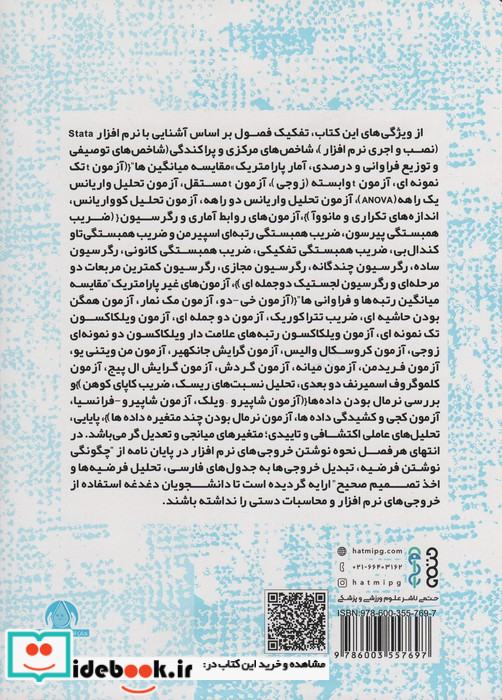 از ویژگی‌های این کتاب، تفکیک فصول بر اساس آشنایی با نرم افزار Stata
(نصب و اجری نرم افزار)، شاخص‌های مرکزی و پراکندگی(شاخص‌های توصیفی
و توزیع فراوانی و درصدی، آمار پارامتریک"مقایسه میانگین ها"{(آزمون t تک
نمونه ای، آزمون t وابسته (زوجی)، آزمون t مستقل، آزمون تحلیل واریانس
یک راهه (ANOVA)، آزمون تحلیل واریانس دو راهه، آزمون تحلیل کوواریانس،
اندازه‌های تکراری و مانووآ)}، آزمون‌های روابط آماری و رگرسیون{(ضریب
همبستگی پیرسون، ضریب همبستگی رتبه‌ای اسپیرمن و ضریب همبستگی تاو
کندال بی، ضریب همبستگی تفکیکی، ضریب همبستگی کانونی، رگرسیون
ساده، رگرسیون چندگانه، رگرسیون مجازی، رگرسیون کمترین مربعات دو
مرحله‌ای و رگرسیون لجستیک دوجمله ای)}، آزمون‌های غیر پارامتریک"مقایسه
میانگین رتبه‌ها و فراوانی ها"{(آزمون خی-دو، آزمون مک نمار، آزمون همگن
بودن حاشیه ای، ضریب تتراکوریک، آزمون دو جمله ای، آزمون ویلکاکسون
تک نمونه ای، آزمون ویلکاکسون رتبه‌های علامت دار ویلکاکسون دو نمونه‌ای
زوجی، آزمون کروسکال والیس، آزمون گرایش جانکهیر، آزمون من ویتنی یو،
آزمون فریدمن، آزمون میانه، آزمون گردش، آزمون گرایش ال پیج، آزمون
کلموگروف اسمیرنف دو بعدی، تحلیل نسبت‌های ریسک، ضریب کاپای کوهن)}و
بررسی نرمال بودن داده‌ها{(آزمون شاپیرو_ویلک، آزمون شاپیرو-فرانسیا،
آزمون کجی و کشیدگی داده ها، آزمون نرمال بودن چند متغیره داده ها)}، پایایی،
تحلیل‌های عاملی اکتشافی و تاییدی؛ متغیرهای میانجی و تعدیل گر می‌باشد. در
انتهای هرفصل نحوه نوشتن خروجی‌های نرم افزار در پایان نامه از "چگونگی
نوشتن فرضیه، تبدیل خروجی‌ها به جدول‌های فارسی، تحلیل فرضیه‌ها و
اخذ تصمیم صحیح" ارایه گردیده است تا دانشجویان دغدغه استفاده از
خروجی‌های نرم افزار و محاسبات دستی را نداشته باشند.
hatmipg.com
۰۲۱-۶۶۴۰۳۱۶۲
hatmipg
حتمی ناشر علوم ورزشی و پزشکی
ISBN:978-600-355-769-7
9 786003 557697
مشاهده و خرید این کتاب در:
idebook.ir